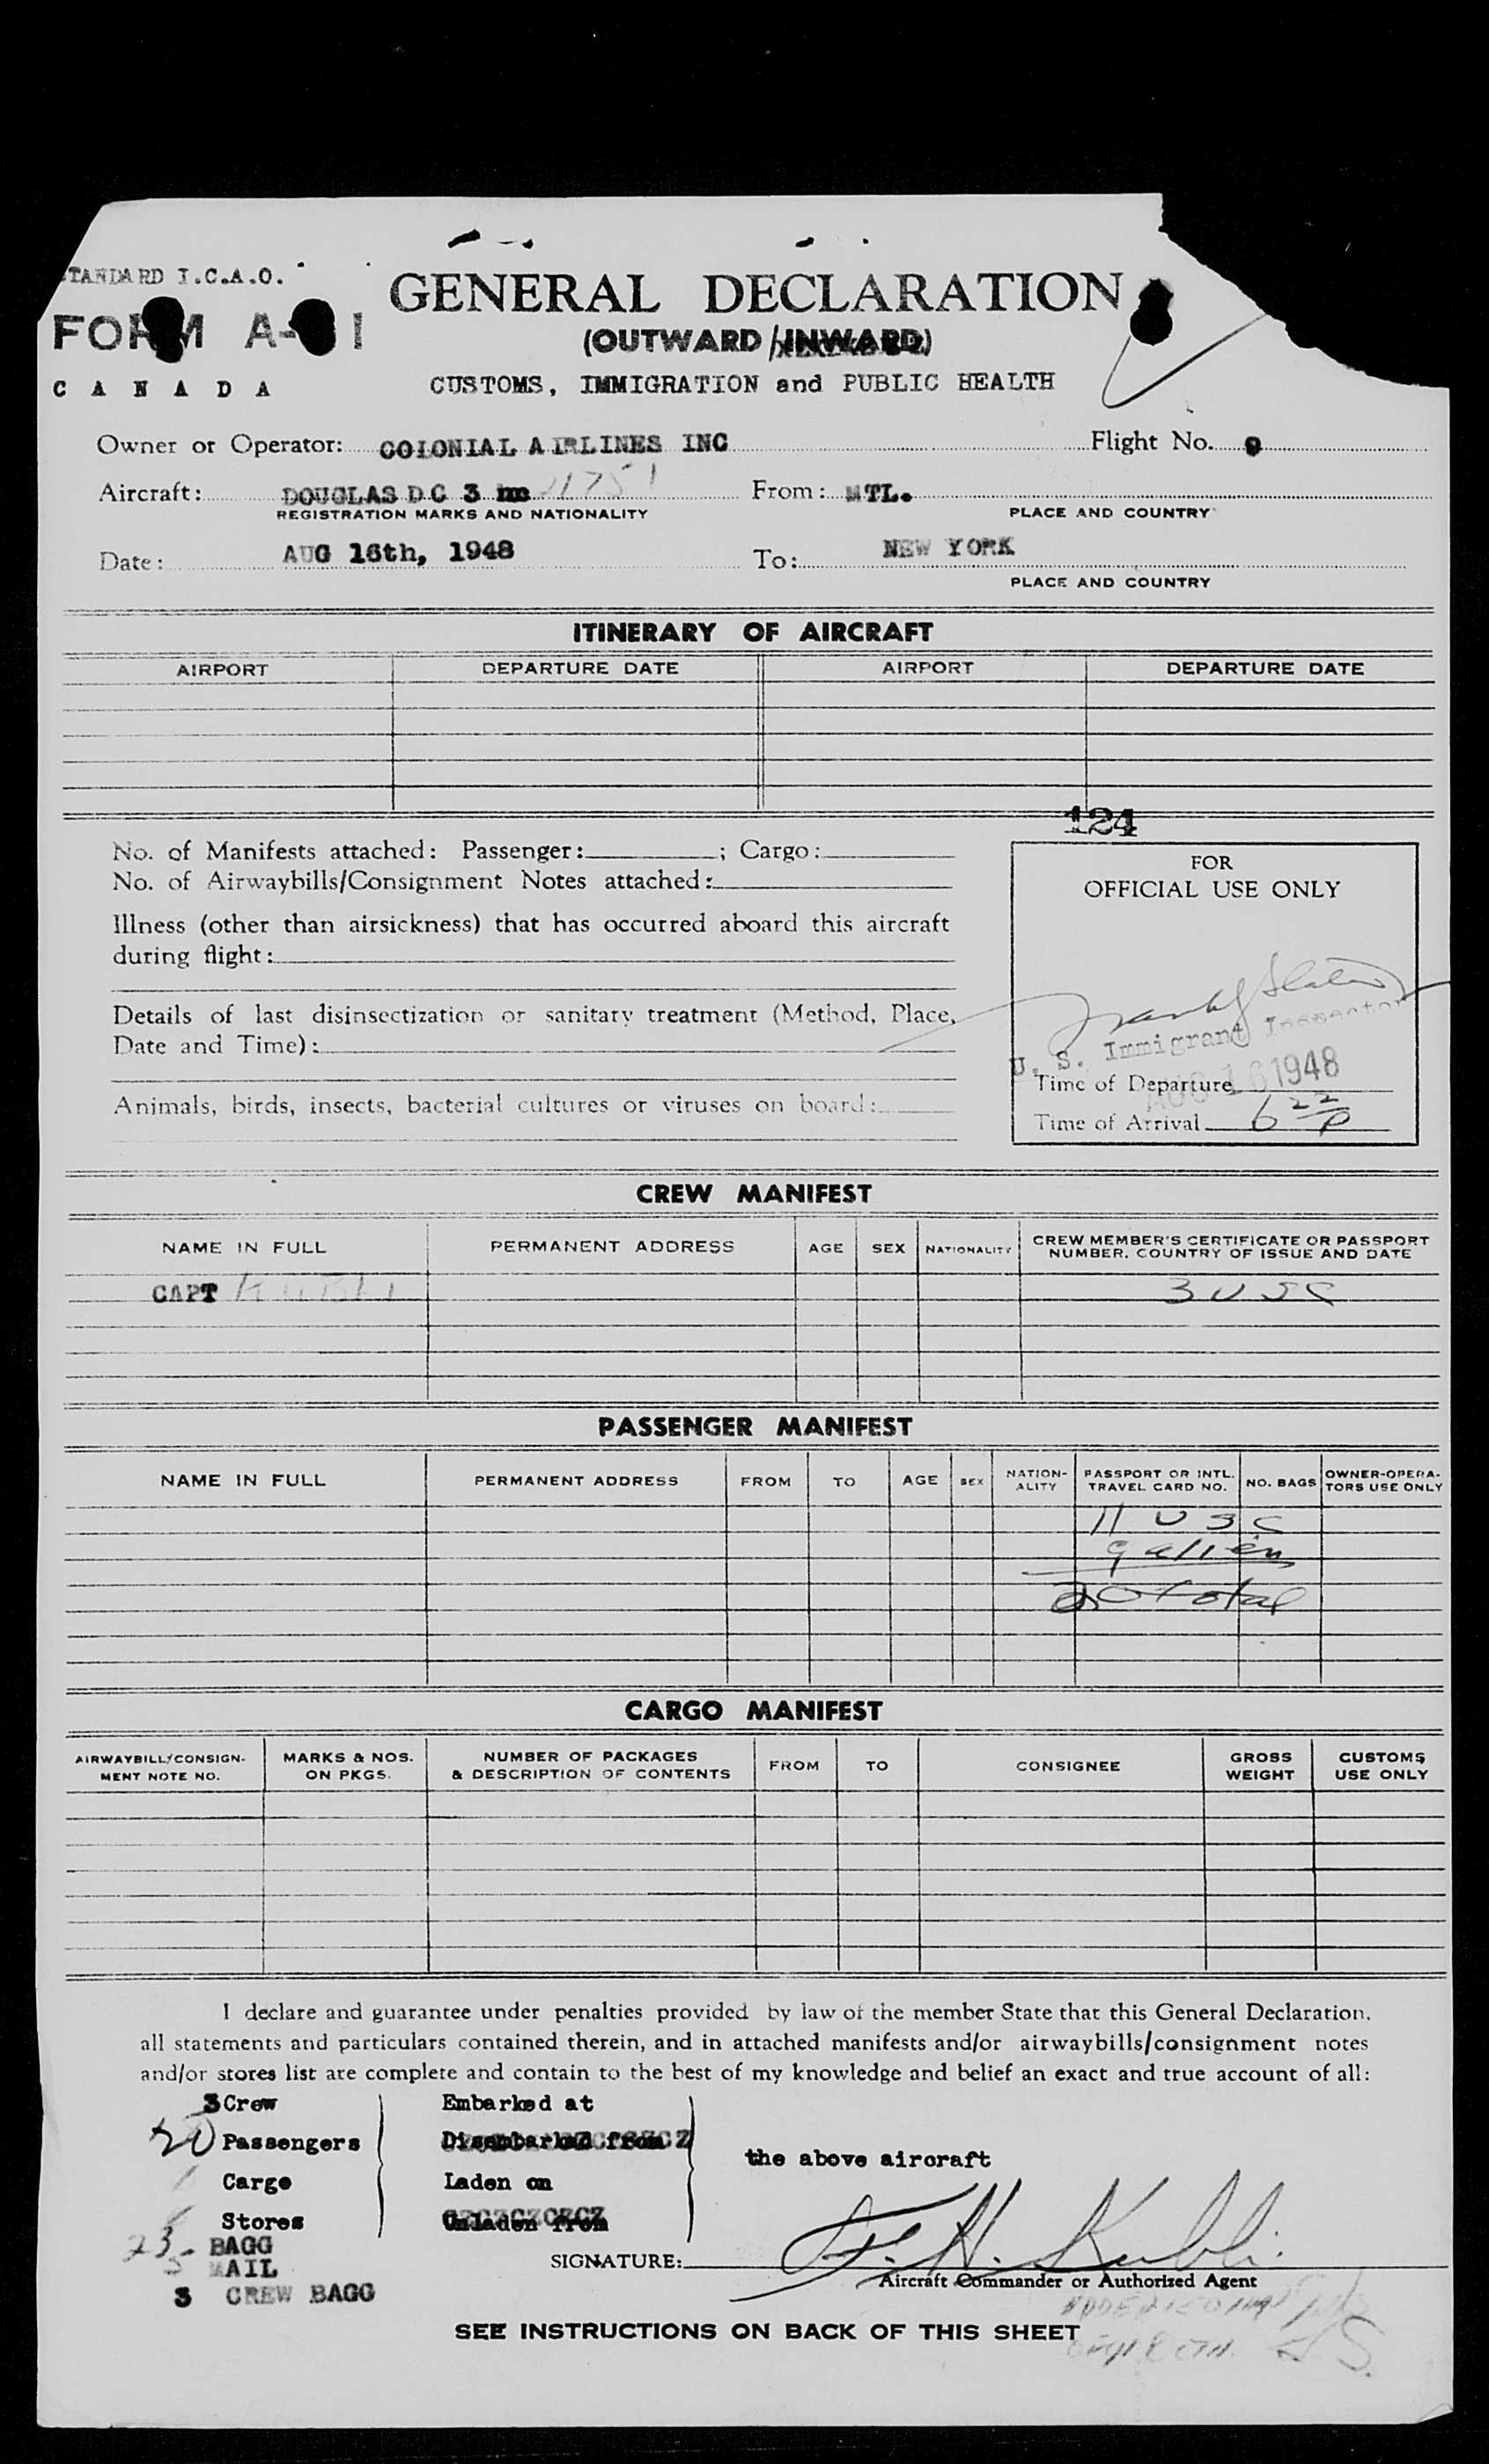 STANDARD I.C.A.O.
FORM A-1
CANADA
GENERAL DECLARATION
(OUTWARD/INWARD)
CUSTOMS, IMMIGRATION and PUBLIC HEALTH
Owner or Operator: COLONIAL AIRLINES INC Flight No. 9
Aircraft: DOUGLAS DC 3 1751 From: MTL.
REGISTRATION MARKS AND NATIONALITY PLACE AND COUNTRY
Date: AUG 16th, 1948 To: NEW YORK
PLACE AND COUNTRY
ITINERARY OF AIRCRAFT
AIRPORT DEPARTURE DATE AIRPORT DEPARTURE DATE
124
No. of Manifests attached: Passenger: ; Cargo:
No. of Airwaybills/Consignment Notes attached:
Illness (other than airsickness) that has occurred aboard this aircraft
during flight:
Details of last disinsectization or sanitary treatment (Method, Place,
Date and Time):
Animals, birds, insects, bacterial cultures or viruses on board:
FOR
OFFICIAL USE ONLY
U. S. Immigrant Inspector
AUG 16 1948
Time of Departure
Time of Arrival 6 22 P
CREW MANIFEST
NAME IN FULL PERMANENT ADDRESS AGE SEX NATIONALITY CREW MEMBER'S CERTIFICATE OR PASSPORT
NUMBER, COUNTRY OF ISSUE AND DATE
CAPT KUBLI 3 USC
PASSENGER MANIFEST
NAME IN FULL PERMANENT ADDRESS FROM TO AGE SEX NATION-
ALITY PASSPORT OR INTL.
TRAVEL CARD NO. NO. BAGS OWNER-OPERA-
TORS USE ONLY
11 USC
9 alien
20 total
CARGO MANIFEST
AIRWAYBILL/CONSIGN-
MENT NOTE NO. MARKS & NOS.
ON PKGS. NUMBER OF PACKAGES
& DESCRIPTION OF CONTENTS FROM TO CONSIGNEE GROSS
WEIGHT CUSTOMS
USE ONLY
I declare and guarantee under penalties provided by law of the member State that this General Declaration,
all statements and particulars contained therein, and in attached manifests and/or airwaybills/consignment notes
and/or stores list are complete and contain to the best of my knowledge and belief an exact and true account of all:
3 Crew Embarked at
20 Passengers Disembarked from
the above aircraft
Cargo Laden on
Stores Unladen from
23 BAGG
5 MAIL
3 CREW BAGG
SIGNATURE: F. H. Kubli
Aircraft Commander or Authorized Agent
SEE INSTRUCTIONS ON BACK OF THIS SHEET